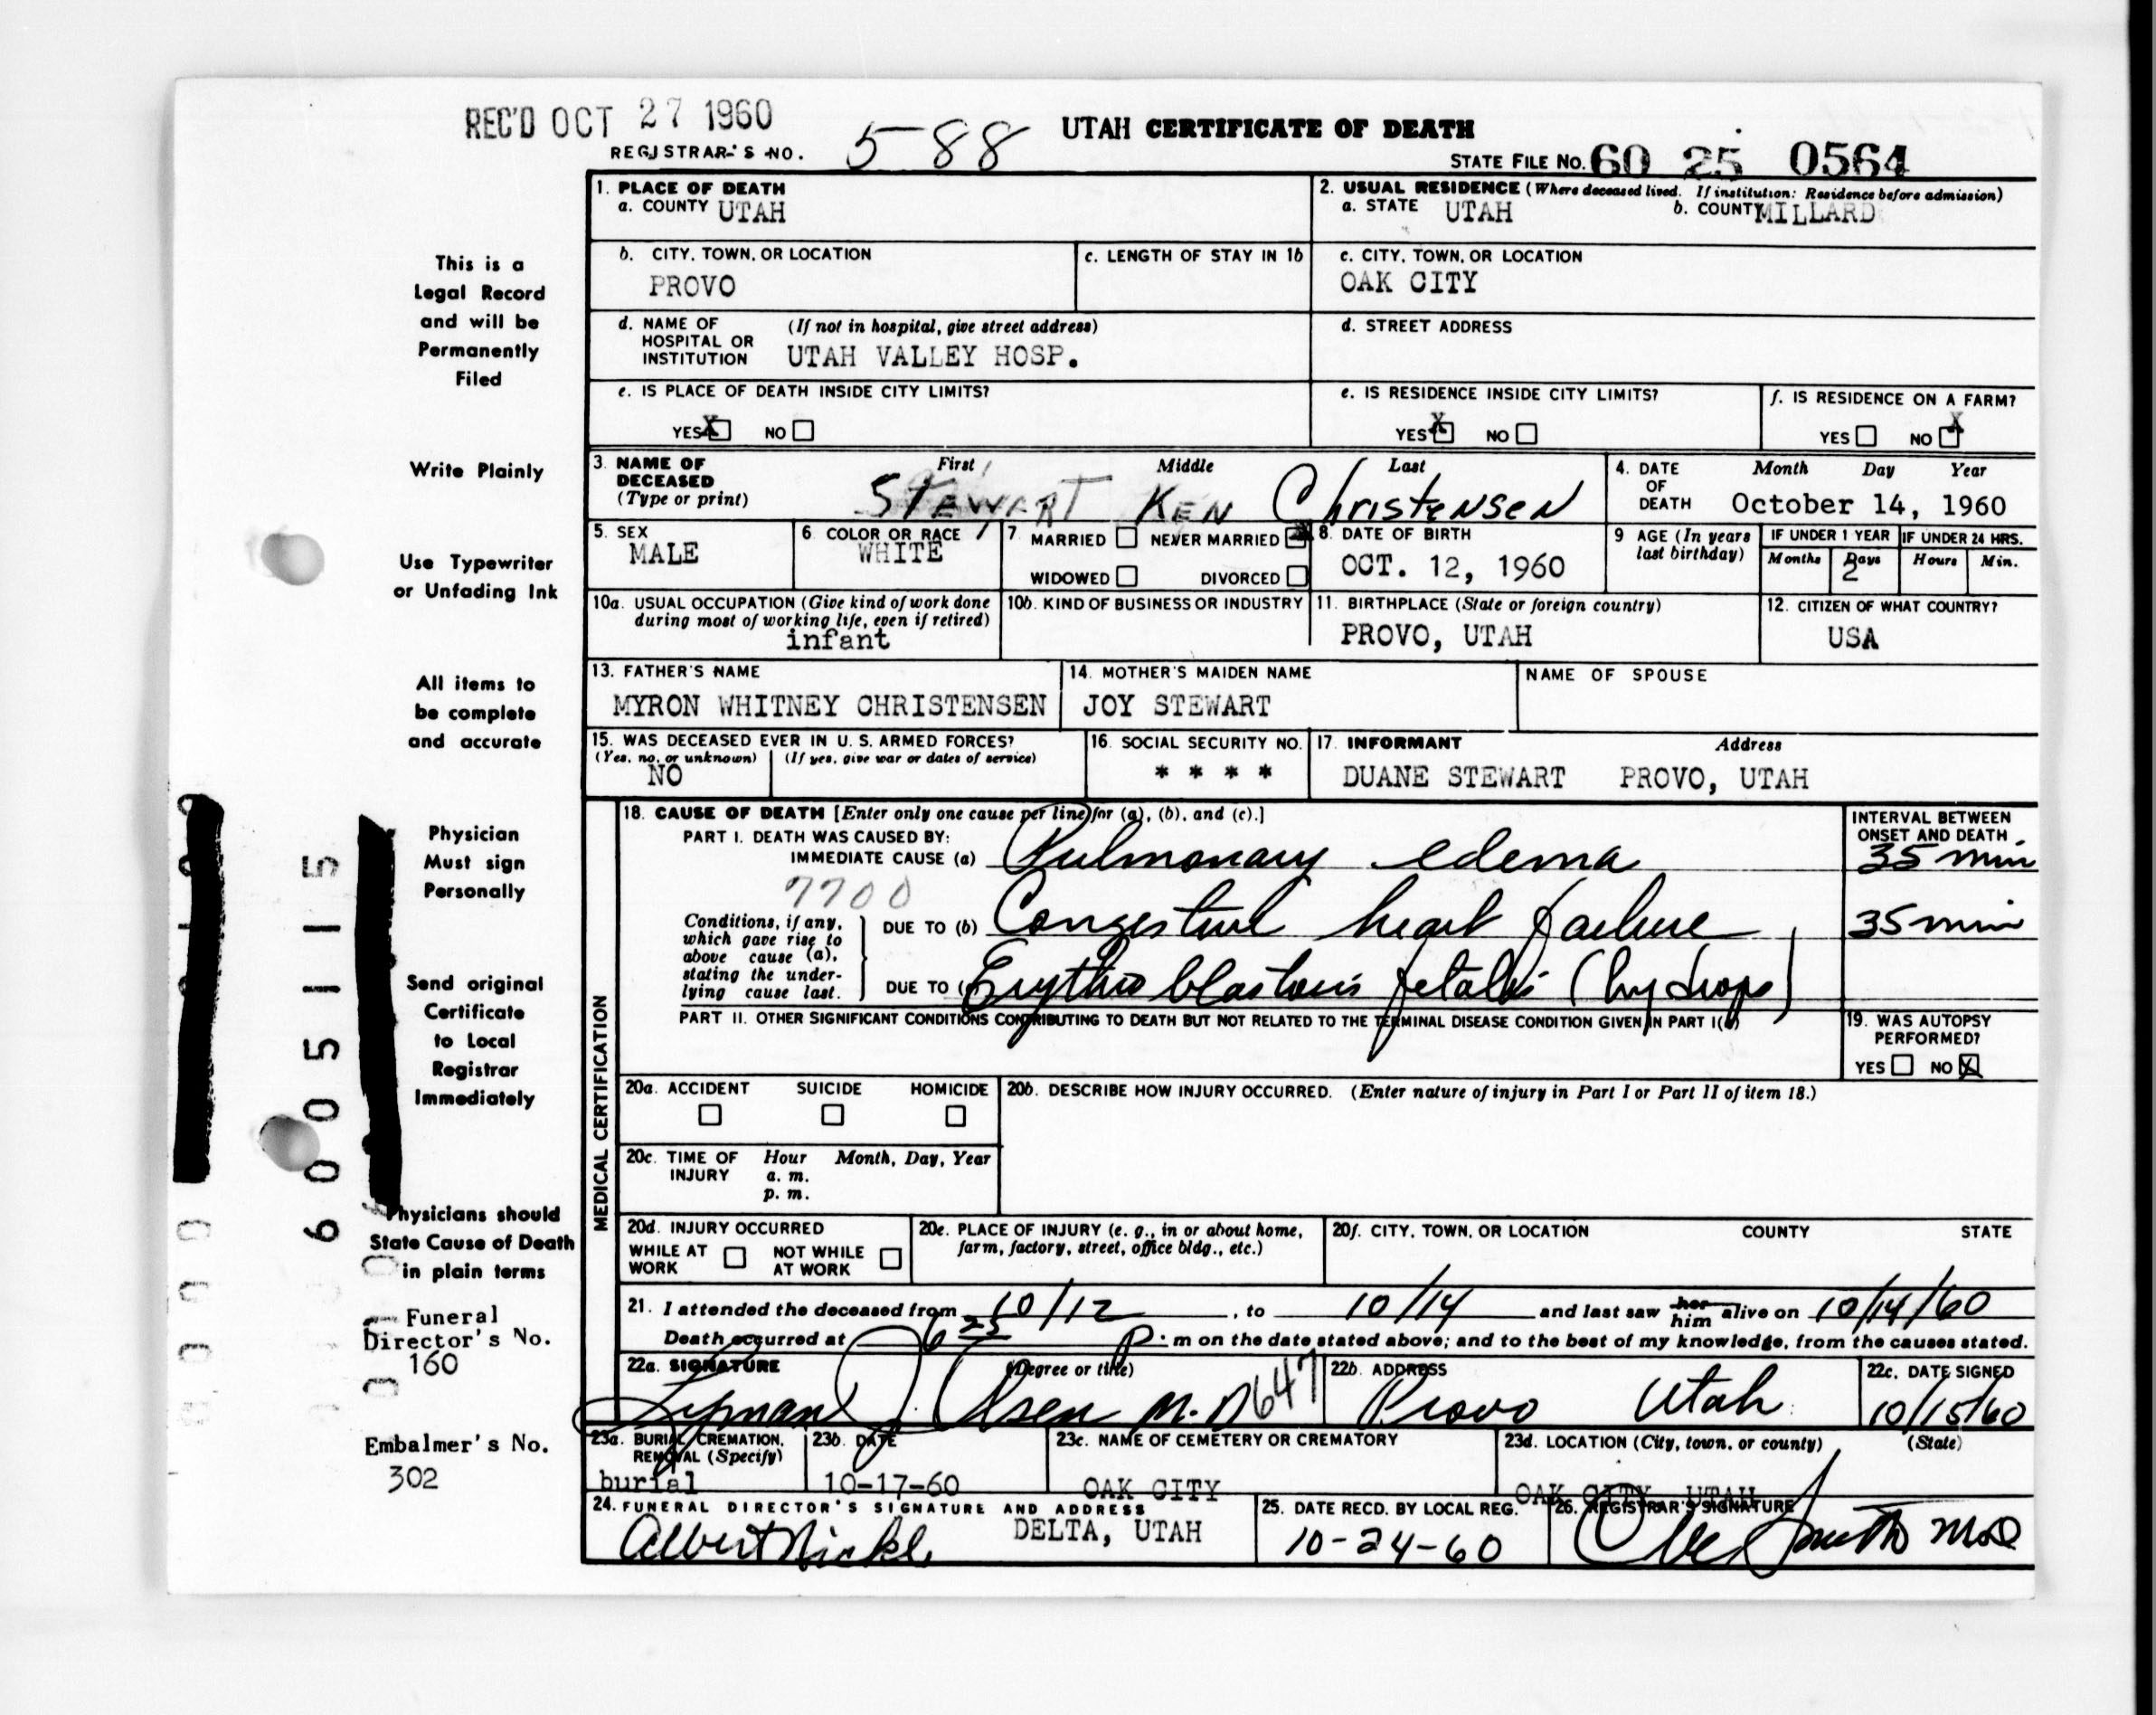 REC'D OCT 27 1960
REGISTRAR'S NO. 588
UTAH CERTIFICATE OF DEATH
STATE FILE NO. 60 25 0564
This is a
Legal Record
and will be
Permanently
Filed
Write Plainly
Use Typewriter
or Unfading Ink
All items to
be complete
and accurate
Physician
Must sign
Personally
Send original
Certificate
to Local
Registrar
Immediately
Physicians should
State Cause of Death
in plain terms
Funeral
Director's No.
160
Embalmer's No.
302
6005115
1. PLACE OF DEATH
a. COUNTY UTAH
2. USUAL RESIDENCE (Where deceased lived. If institution: Residence before admission)
a. STATE UTAH b. COUNTY MILLARD
b. CITY, TOWN, OR LOCATION
PROVO
c. LENGTH OF STAY IN 1b
c. CITY, TOWN, OR LOCATION
OAK CITY
d. NAME OF HOSPITAL OR INSTITUTION (If not in hospital, give street address)
UTAH VALLEY HOSP.
d. STREET ADDRESS
e. IS PLACE OF DEATH INSIDE CITY LIMITS?
YES X NO
e. IS RESIDENCE INSIDE CITY LIMITS?
YES X NO
f. IS RESIDENCE ON A FARM?
YES NO X
3. NAME OF DECEASED (Type or print)
First Middle Last
Stewart Ken Christensen
4. DATE OF DEATH Month Day Year
October 14, 1960
5. SEX
MALE
6. COLOR OR RACE
WHITE
7. MARRIED NEVER MARRIED X
WIDOWED DIVORCED
8. DATE OF BIRTH
OCT. 12, 1960
9 AGE (In years last birthday)
IF UNDER 1 YEAR IF UNDER 24 HRS.
Months Days Hours Min.
2
10a. USUAL OCCUPATION (Give kind of work done during most of working life, even if retired)
infant
10b. KIND OF BUSINESS OR INDUSTRY
11. BIRTHPLACE (State or foreign country)
PROVO, UTAH
12. CITIZEN OF WHAT COUNTRY?
USA
13. FATHER'S NAME
MYRON WHITNEY CHRISTENSEN
14. MOTHER'S MAIDEN NAME
JOY STEWART
NAME OF SPOUSE
15. WAS DECEASED EVER IN U. S. ARMED FORCES?
(Yes, no, or unknown) (If yes, give war or dates of service)
NO
16. SOCIAL SECURITY NO.
* * * *
17. INFORMANT Address
DUANE STEWART PROVO, UTAH
MEDICAL CERTIFICATION
18. CAUSE OF DEATH [Enter only one cause per line for (a), (b), and (c).]
PART I. DEATH WAS CAUSED BY:
IMMEDIATE CAUSE (a) Pulmonary edema
7700
Conditions, if any, which gave rise to above cause (a), stating the underlying cause last.
DUE TO (b) Congestive heart failure
DUE TO ( Erythroblastosis fetalis (hydrops)
INTERVAL BETWEEN ONSET AND DEATH
35 min
35 min
PART II. OTHER SIGNIFICANT CONDITIONS CONTRIBUTING TO DEATH BUT NOT RELATED TO THE TERMINAL DISEASE CONDITION GIVEN IN PART I(a)
19. WAS AUTOPSY PERFORMED?
YES NO X
20a. ACCIDENT SUICIDE HOMICIDE
20b. DESCRIBE HOW INJURY OCCURRED. (Enter nature of injury in Part I or Part II of item 18.)
20c. TIME OF INJURY Hour Month, Day, Year
a. m.
p. m.
20d. INJURY OCCURRED
WHILE AT WORK NOT WHILE AT WORK
20e. PLACE OF INJURY (e. g., in or about home, farm, factory, street, office bldg., etc.)
20f. CITY, TOWN, OR LOCATION COUNTY STATE
21. I attended the deceased from 10/12, to 10/14 and last saw her him alive on 10/14/60
Death occurred at 6 25 p. m on the date stated above; and to the best of my knowledge, from the causes stated.
22a. SIGNATURE (Degree or title)
Lyman J. Olsen M.D 647
22b. ADDRESS
Provo Utah
22c. DATE SIGNED
10/15/60
23a. BURIAL, CREMATION, REMOVAL (Specify)
burial
23b. DATE
10-17-60
23c. NAME OF CEMETERY OR CREMATORY
OAK CITY
23d. LOCATION (City, town, or county) (State)
OAK CITY, UTAH
24. FUNERAL DIRECTOR'S SIGNATURE AND ADDRESS
Albert Nickle DELTA, UTAH
25. DATE RECD. BY LOCAL REG.
10-24-60
26. REGISTRAR'S SIGNATURE
Smith M.D.